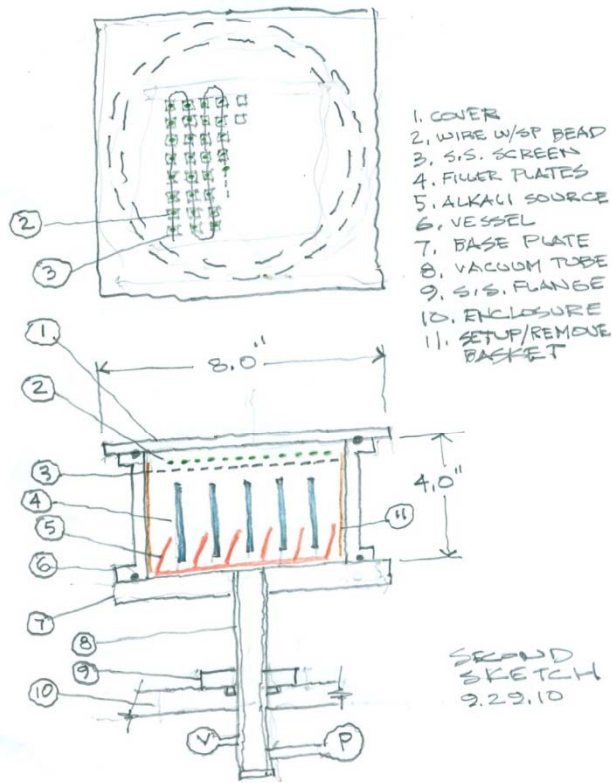 1. COVER
2. WIRE W/SP BEAD
3. S.S. SCREEN
4. FILLER PLATES
5. ALKALI SOURCE
6. VESSEL
7. BASE PLATE
8. VACUUM TUBE
9. S.S. FLANGE
10. ENCLOSURE
11. SETUP/REMOVE
BASKET
2
3
1
8.0"
2
3
4.0"
4
11
5
6
7
8
9
10
V
P
SECOND
SKETCH
9.29.10